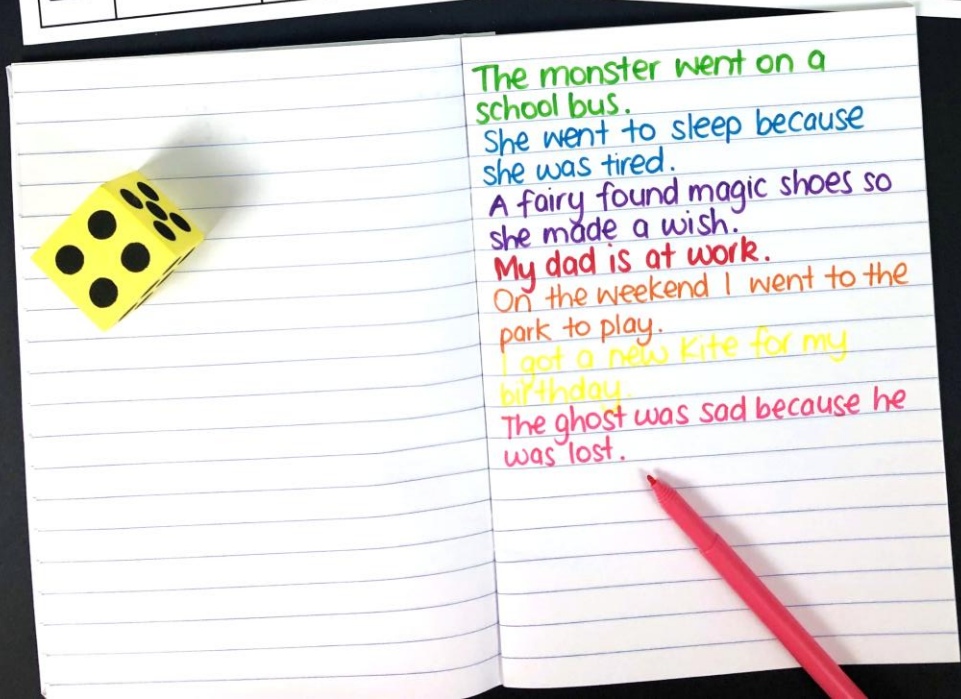 The monster went on a
school bus.
She went to sleep because
she was tired.
A fairy found magic shoes so
she made a wish.
My dad is at work.
On the weekend I went to the
park to play.
I got a new kite for my
birthday.
The ghost was sad because he
was lost.